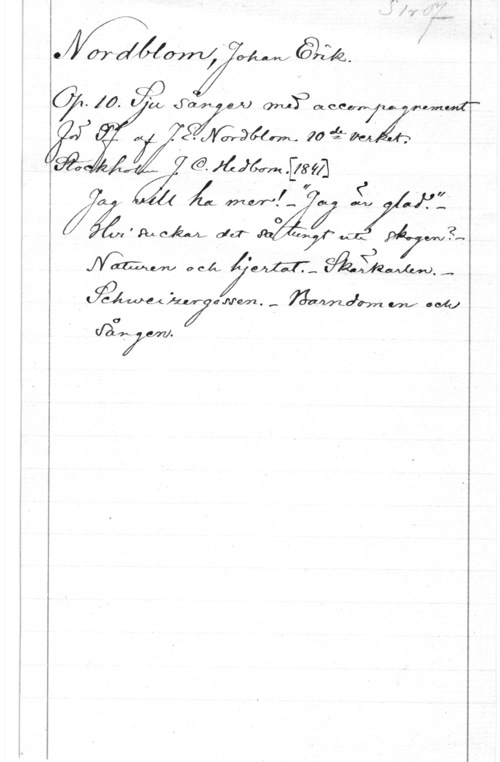 Nordblom, Johan Erik.
Op. 10. Sju sånger med accompagnement
för Pf af J. E. Nordblom. 10de verket.
Stockholm J. C. Hedbom. [1847]
Jag will ha mer! - "Jag är glad!" -
Hvi suckar det så tungt uti skogen? -
Naturen och hjertat. - Skärkarlen. -
Schweizergossen. - Barndomen och
Sången.